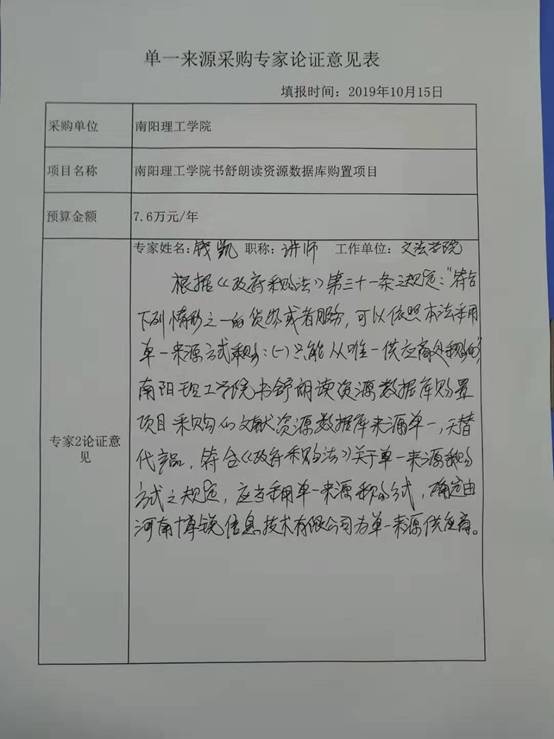 单一来源采购专家论证意见表
填报时间：2019年10月15日
采购单位 南阳理工学院
项目名称 南阳理工学院书舒朗读资源数据库购置项目
预算金额 7.6万元/年
专家2论证意见
专家姓名：钱凯 职称：讲师 工作单位：文法学院
根据《政府采购法》第三十一条之规定："符合
下列情形之一的货物或者服务，可以依照本法采用
单一来源方式采购：(一)只能从唯一供应商处采购的"
南阳理工学院书舒朗读资源数据库购置
项目采购的文献资源数据库来源单一，无替
代产品，符合《政府采购法》关于单一来源采购
方式之规定，应当采用单一来源采购方式，确定由
河南博锐信息技术有限公司为单一来源供应商。